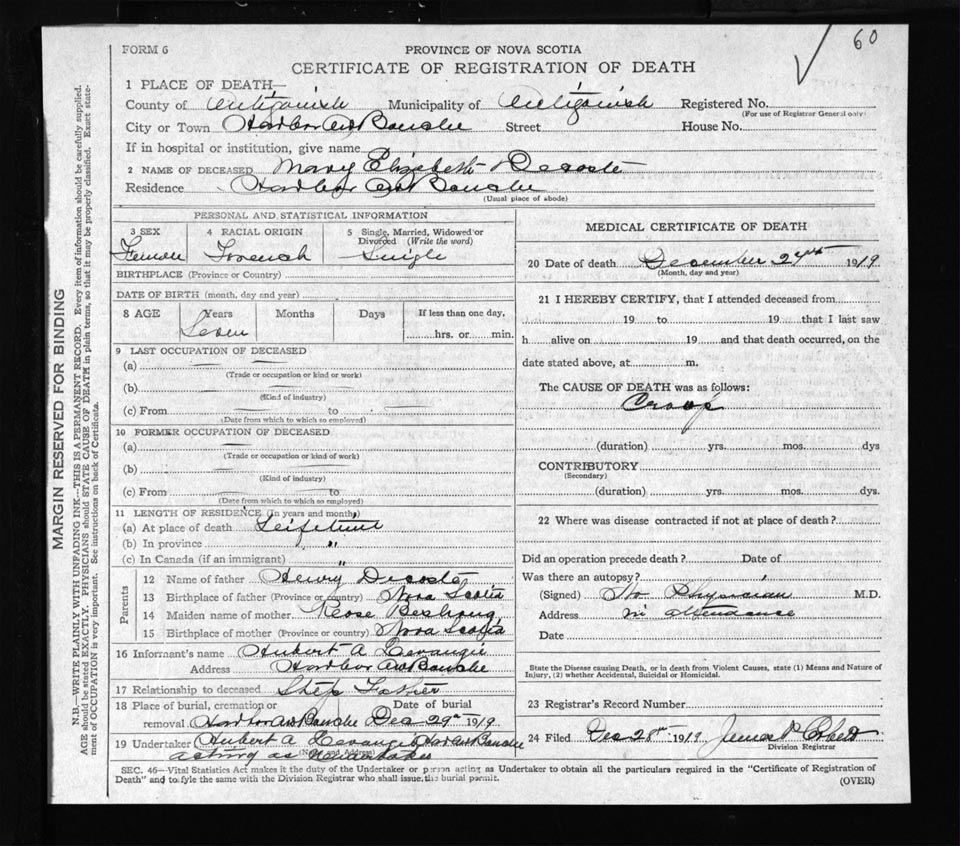 60
FORM 6
PROVINCE OF NOVA SCOTIA
CERTIFICATE OF REGISTRATION OF DEATH
1 PLACE OF DEATH—
County of Antigonish Municipality of Antigonish Registered No.
(For use of Registrar General only)
City or Town Harbor Au Bouche Street House No.
If in hospital or institution, give name
2 NAME OF DECEASED Mary Elizabeth Decoste
Residence Harbor Au Bouche
(Usual place of abode)
PERSONAL AND STATISTICAL INFORMATION
3 SEX 4 RACIAL ORIGIN 5 Single, Married, Widowed or Divorced (Write the word)
Female French Single
BIRTHPLACE (Province or Country)
DATE OF BIRTH (month, day and year)
8 AGE Years Months Days If less than one day,
Seven hrs. or min.
9 LAST OCCUPATION OF DECEASED
(a)
(Trade or occupation or kind or work)
(b)
(Kind of industry)
(c) From to
(Date from which to which so employed)
10 FORMER OCCUPATION OF DECEASED
(a)
(Trade or occupation or kind of work)
(b)
(Kind of industry)
(c) From to
(Date from which to which so employed)
11 LENGTH OF RESIDENCE (in years and months)
(a) At place of death Leifetime
(b) In province "
(c) In Canada (if an immigrant) "
Parents
12 Name of father Henry Decoste
13 Birthplace of father (Province or country) Nova Scotia
14 Maiden name of mother Rose
15 Birthplace of mother (Province or country) Nova Scotia
16 Informant's name Hubert A Levangie
Address Harbor Au Bouche
17 Relationship to deceased Step Father
18 Place of burial, cremation or Date of burial
removal Harbor Au Bouche Dec 29th 1919
19 Undertaker Hubert A Levangie Har Au Bouche
(Name and Address)
acting as Undertaker
MEDICAL CERTIFICATE OF DEATH
20 Date of death December 24th 1919
(Month, day and year)
21 I HEREBY CERTIFY, that I attended deceased from
19 to 19 that I last saw
h alive on 19 and that death occurred, on the
date stated above, at m.
The CAUSE OF DEATH was as follows:
Croup
(duration) yrs. mos. dys
CONTRIBUTORY
(Secondary)
(duration) yrs. mos. dys.
22 Where was disease contracted if not at place of death?
Did an operation precede death? Date of
Was there an autopsy?
(Signed) No Physician M.D.
Address in attendance
Date
State the Disease causing Death, or in death from Violent Causes, state (1) Means and Nature of
Injury, (2) whether Accidental, Suicidal or Homicidal.
23 Registrar's Record Number
24 Filed Dec 28th 1919
Division Registrar
SEC. 46—Vital Statistics Act makes it the duty of the Undertaker or person acting as Undertaker to obtain all the particulars required in the "Certificate of Registration of
Death" and to fyle the same with the Division Registrar who shall issue the burial permit.
(OVER)
MARGIN RESERVED FOR BINDING
N.B.—WRITE PLAINLY WITH UNFADING INK—THIS IS A PERMANENT RECORD. Every item of information should be carefully supplied.
AGE should be stated EXACTLY. PHYSICIANS should STATE CAUSE OF DEATH in plain terms, so that it may be properly classified. Exact state-
ment of OCCUPATION is very important. See instructions on back of Certificate.